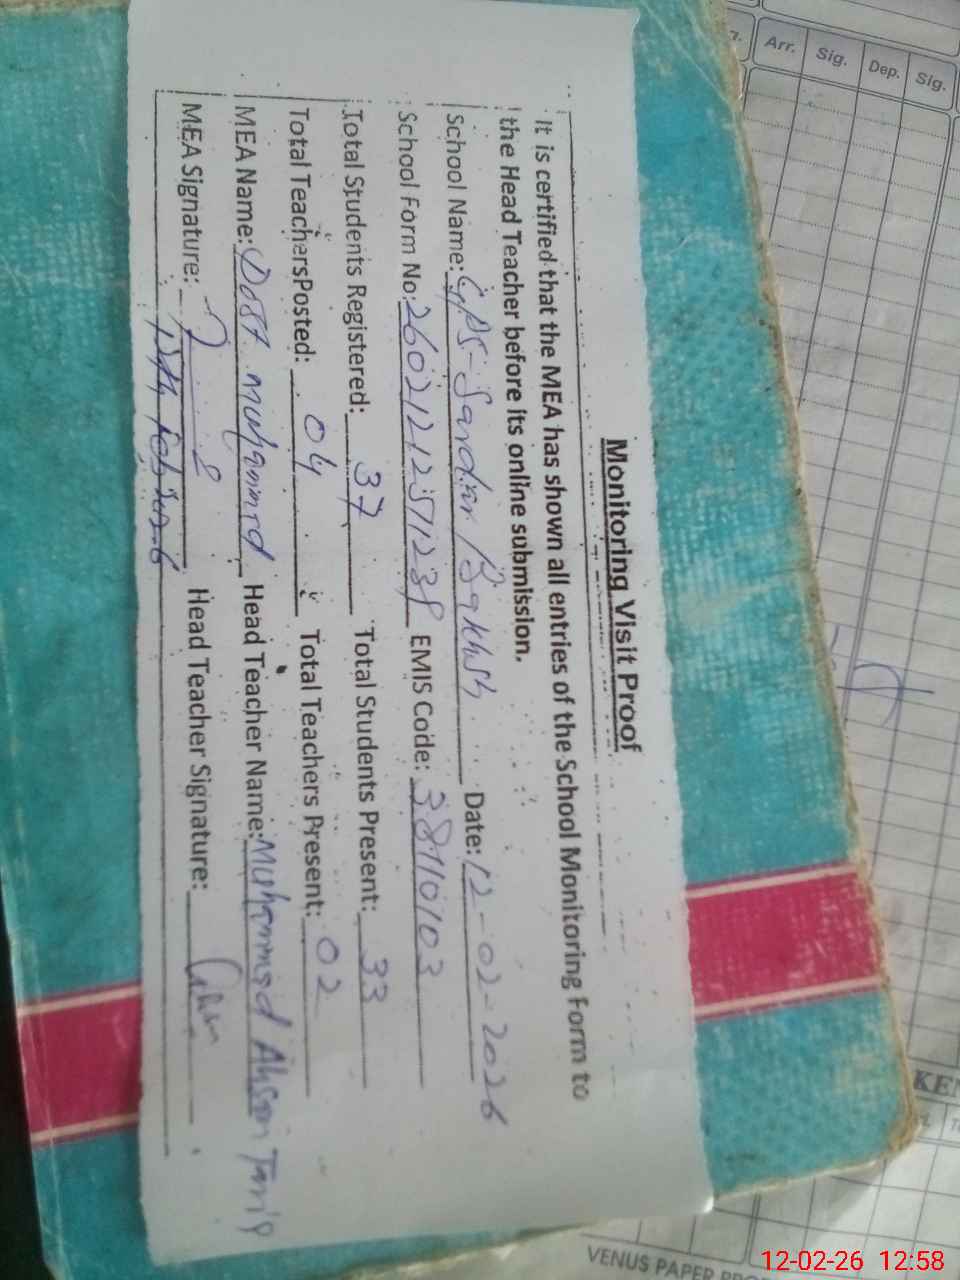 Monitoring Visit Proof
It is certified that the MEA has shown all entries of the School Monitoring Form to
the Head Teacher before its online submission.
School Name: GPS-Sardar Bakhsh Date: 12-02-2026
School Form No: EMIS Code: 38110103
Total Students Registered: 37 Total Students Present: 33
Total TeachersPosted: 04 Total Teachers Present: 02
MEA Name: Dost muhammad Head Teacher Name: Muhammad Ahsan
MEA Signature: Head Teacher Signature:
12th feb 2026
Arr. Sig. Dep. Sig.
KEN
VENUS PAPER PRO
12-02-26 12:58